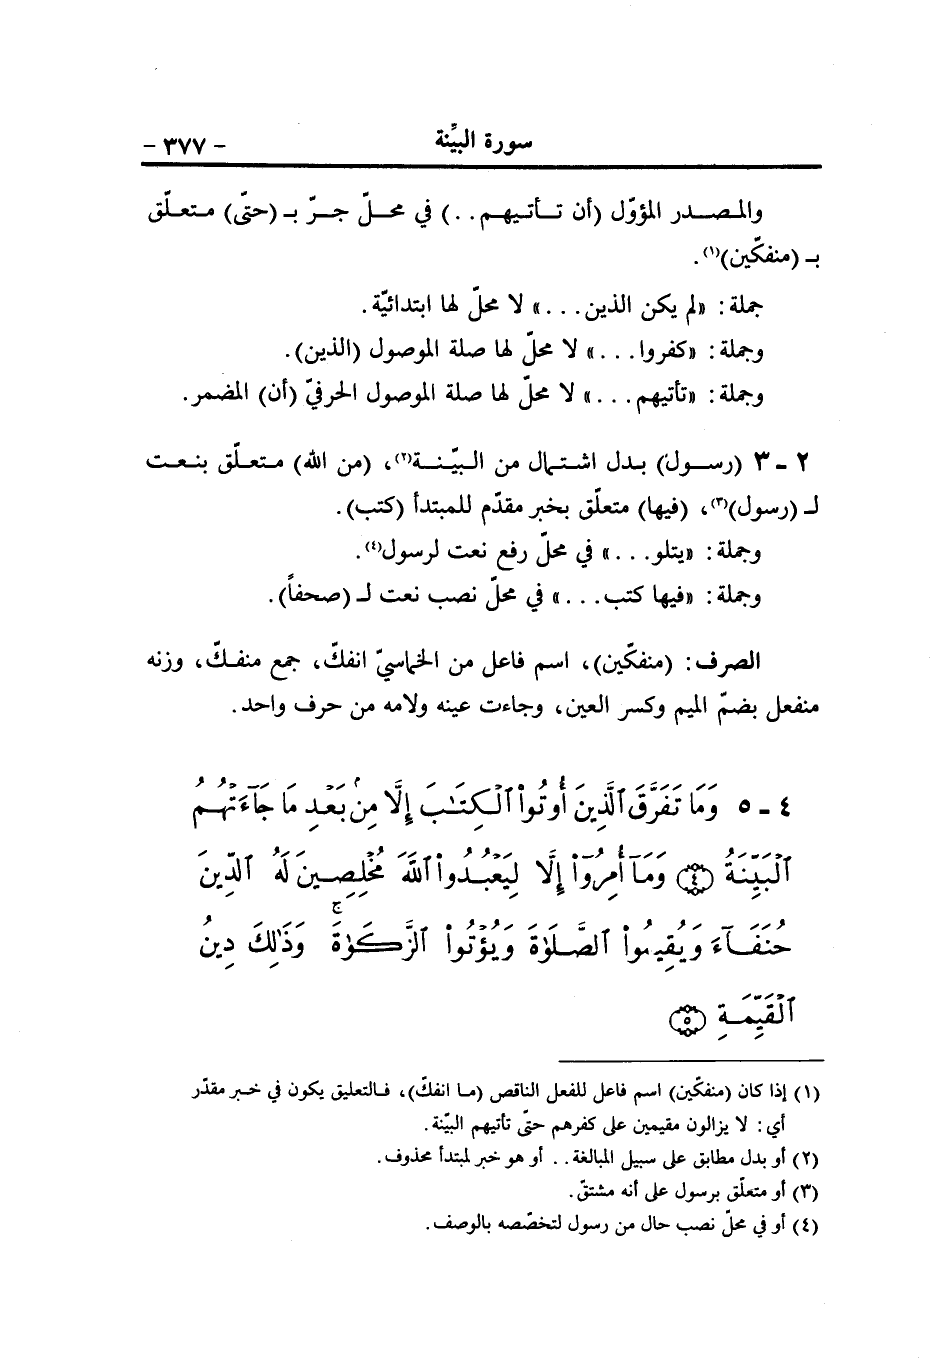 سورة البيِّنة
- ٣٧٧ -
والمصدر المؤوّل (أن تأتيهم . .) في محلّ جرّ بـ (حتّى) متعلّق
بـ (منفكّين)(١).
جملة: «لم يكن الذين . . .» لا محلّ لها ابتدائيّة.
وجملة: «كفروا . . .» لا محلّ لها صلة الموصول (الذين).
وجملة: «تأتيهم . . .» لا محلّ لها صلة الموصول الحرفيّ (أن) المضمر.
٢ - ٣ (رسول) بدل اشتمال من البيّنة(٢)، (من الله) متعلّق بنعت
لـ (رسول)(٣)، (فيها) متعلّق بخبر مقدّم للمبتدأ (كتب).
وجملة: «يتلو . . .» في محلّ رفع نعت لرسول(٤).
وجملة: «فيها كتب . . .» في محلّ نصب نعت لـ (صحفاً).
الصرف: (منفكّين)، اسم فاعل من الخماسيّ انفكّ، جمع منفكّ، وزنه
منفعل بضمّ الميم وكسر العين، وجاءت عينه ولامه من حرف واحد.
٤ - ٥ وَمَا تَفَرَّقَ ٱلَّذِينَ أُوتُواْ ٱلْكِتَٰبَ إِلَّا مِنۢ بَعْدِ مَا جَآءَتْهُمُ
ٱلْبَيِّنَةُ (٤) وَمَآ أُمِرُوٓاْ إِلَّا لِيَعْبُدُواْ ٱللَّهَ مُخْلِصِينَ لَهُ ٱلدِّينَ
حُنَفَآءَ وَيُقِيمُواْ ٱلصَّلَوٰةَ وَيُؤْتُواْ ٱلزَّكَوٰةَ ۚ وَذَٰلِكَ دِينُ
ٱلْقَيِّمَةِ (٥)
(١) إذا كان (منفكّين) اسم فاعل للفعل الناقص (ما انفكّ)، فالتعليق يكون في خبر مقدّر
أي: لا يزالون مقيمين على كفرهم حتّى تأتيهم البيّنة.
(٢) أو بدل مطابق على سبيل المبالغة . . أو هو خبر لمبتدأ محذوف.
(٣) أو متعلّق برسول على أنه مشتقّ.
(٤) أو في محلّ نصب حال من رسول لتخصّصه بالوصف.